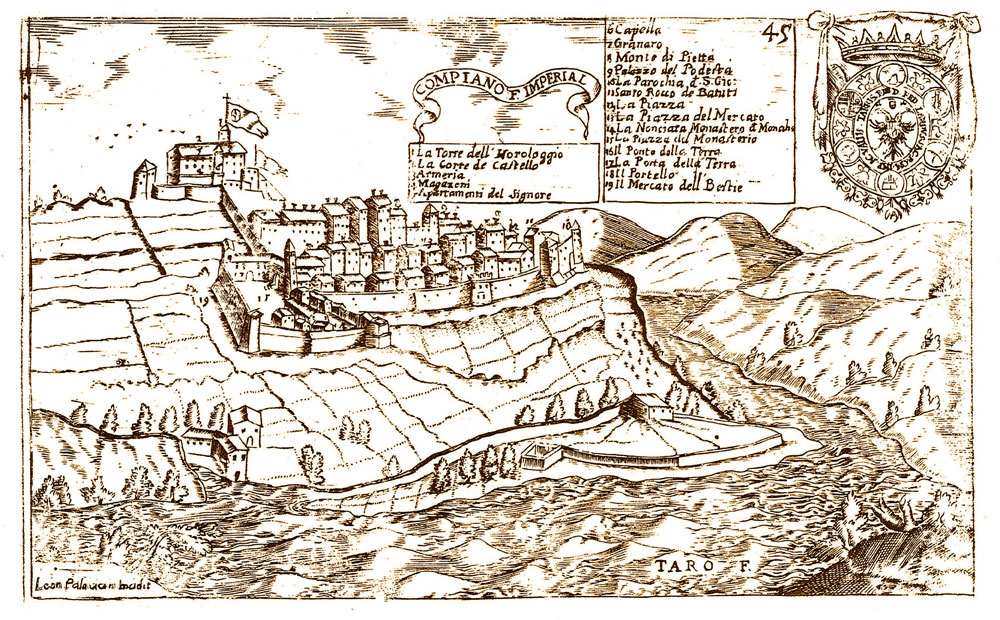 COMPIANO F. IMPERIAL
1 La Torre dell'Horologgio
2 La Corte de Castello
3 Armeria
4 Magazeni
5 Apartamenti del Signore
6 Capella
7 Granaro
8 Monte di Pietta
9 Palazzo del Podesta
10 La Parochia d. S. Gio:
11 Santo Rocco de Batuti
12 La Piazza
13 La Piazza del Mercato
14 La Nonciata Monastero d Monahe
15 La Piazza del Monasterio
16 Il Ponte della Terra
17 La Porta della Terra
18 Il Portello
19 Il Mercato dell Bestie
45
TARO F.
Leon